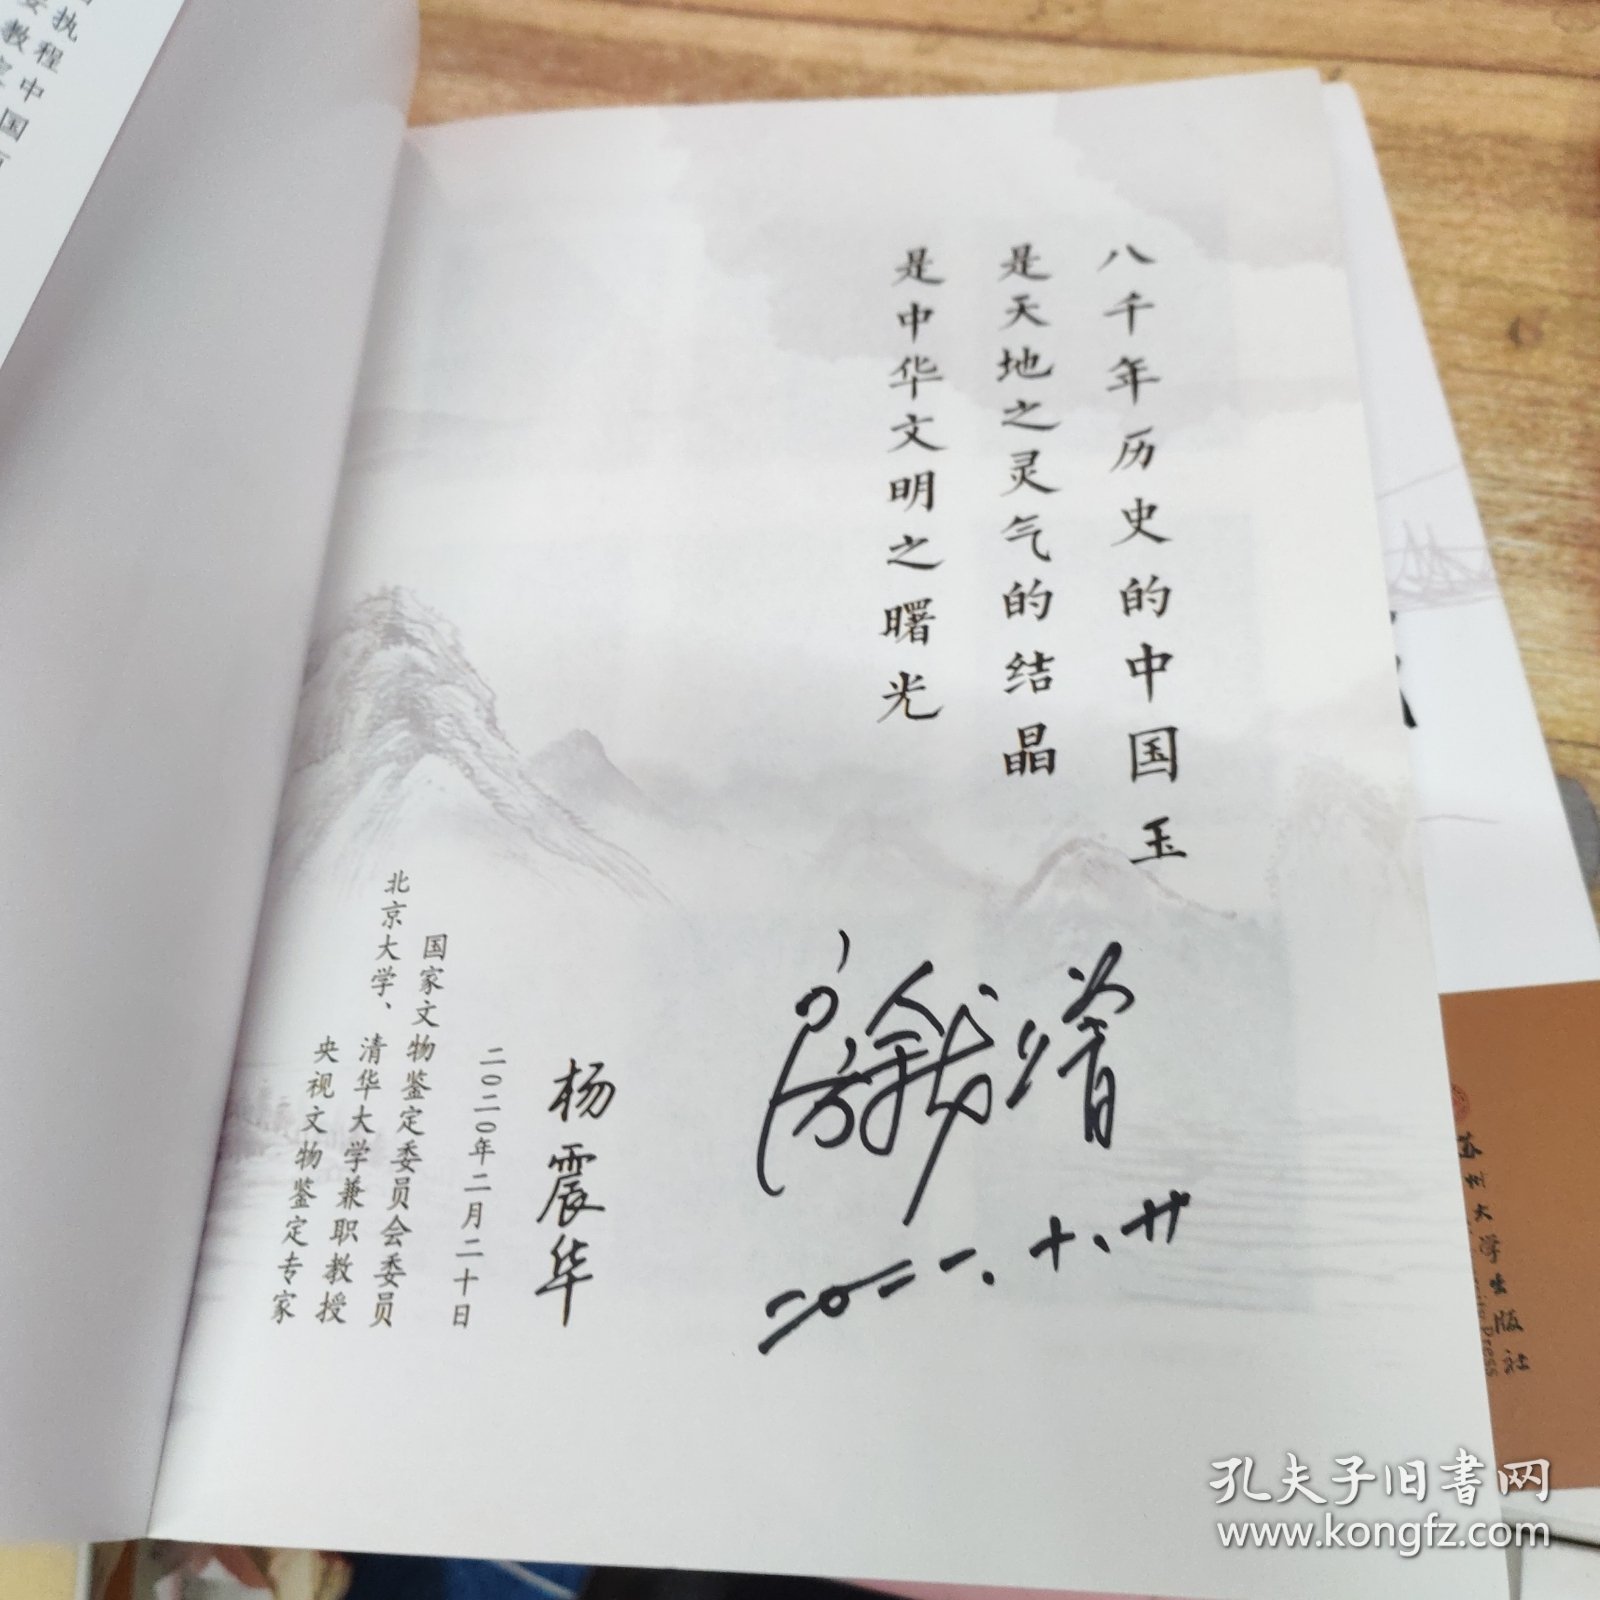 八千年历史的中国玉
是天地之灵气的结晶
是中华文明之曙光
杨震华
二〇二〇年二月二十日
国家文物鉴定委员会委员
北京大学、清华大学兼职教授
央视文物鉴定专家
二〇二一.十.廿
苏州大学出版社
Press
执
程
中
教
国
孔夫子旧书网
www.kongfz.com